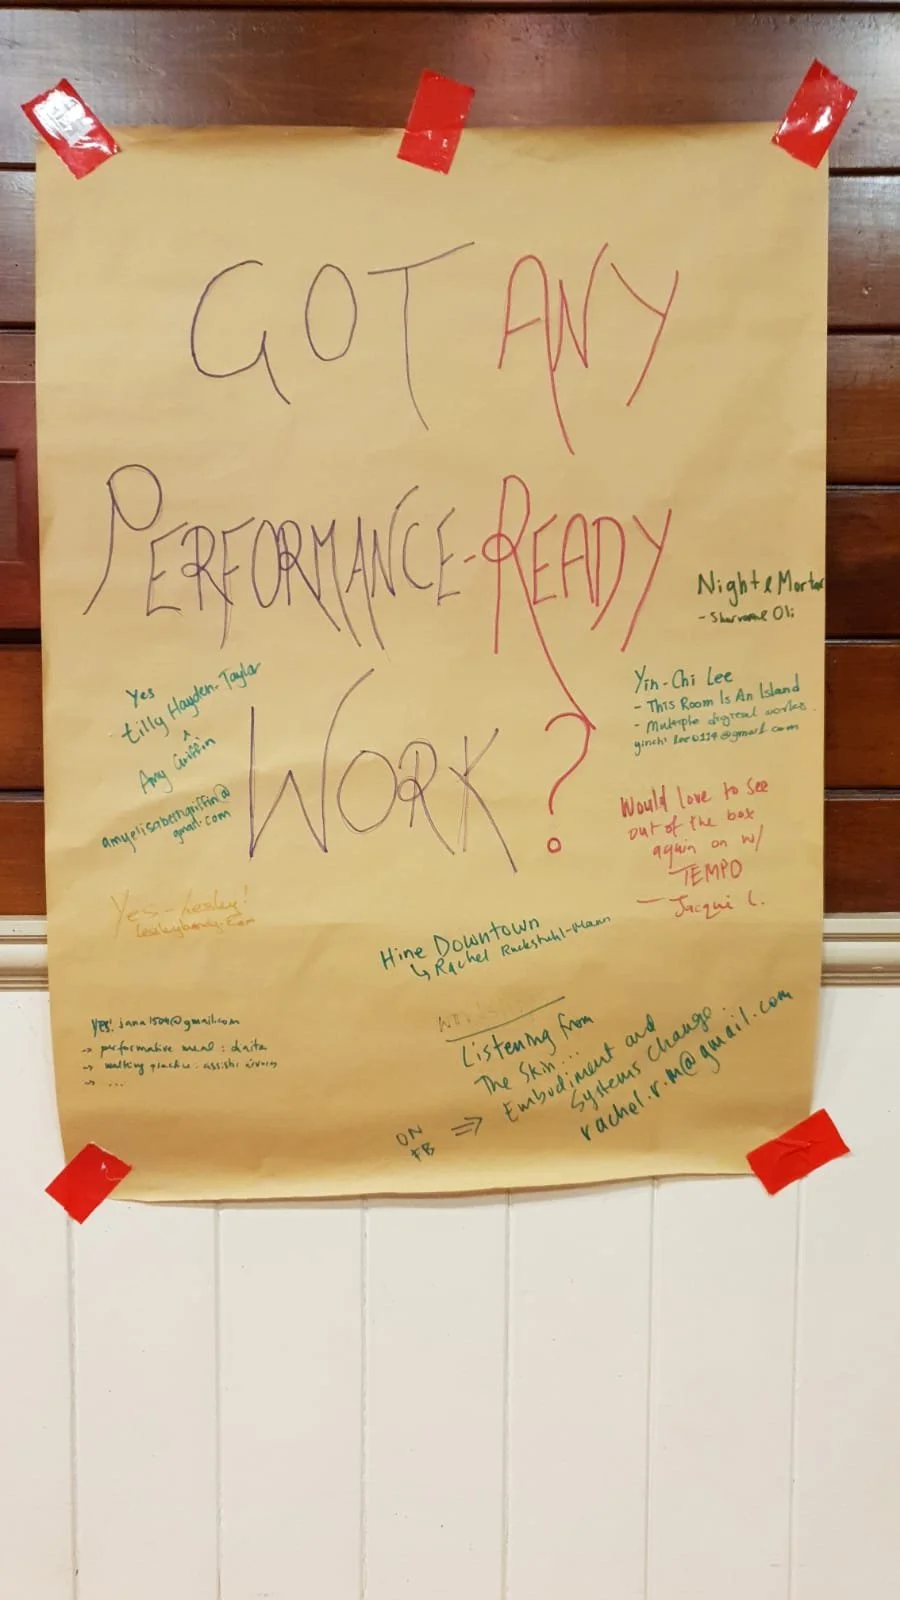 GOT ANY
PERFORMANCE-READY
WORK?
Night & Mortar
Yes
tilly Hayden-Taylor
^
Amy Griffin
amyelisabethgriffin@
gmail.com
Yin-Chi Lee
- This Room Is An Island
- Multiple digital works.
yinchi lee0114@gmail.com
Would love to see
out of the box
again on w/
TEMPO
- Jacqui L.
Yes - Lesley!
Hine Downtown
↳ Rachel Ruckstuhl-Mann
YES! jana1504@gmail.com
→ performative meal:
→ walking
→ ...
Listening from
The Skin...
Embodiment and
Systems Change...
rachel.r.m@gmail.com
ON
FB ⇒